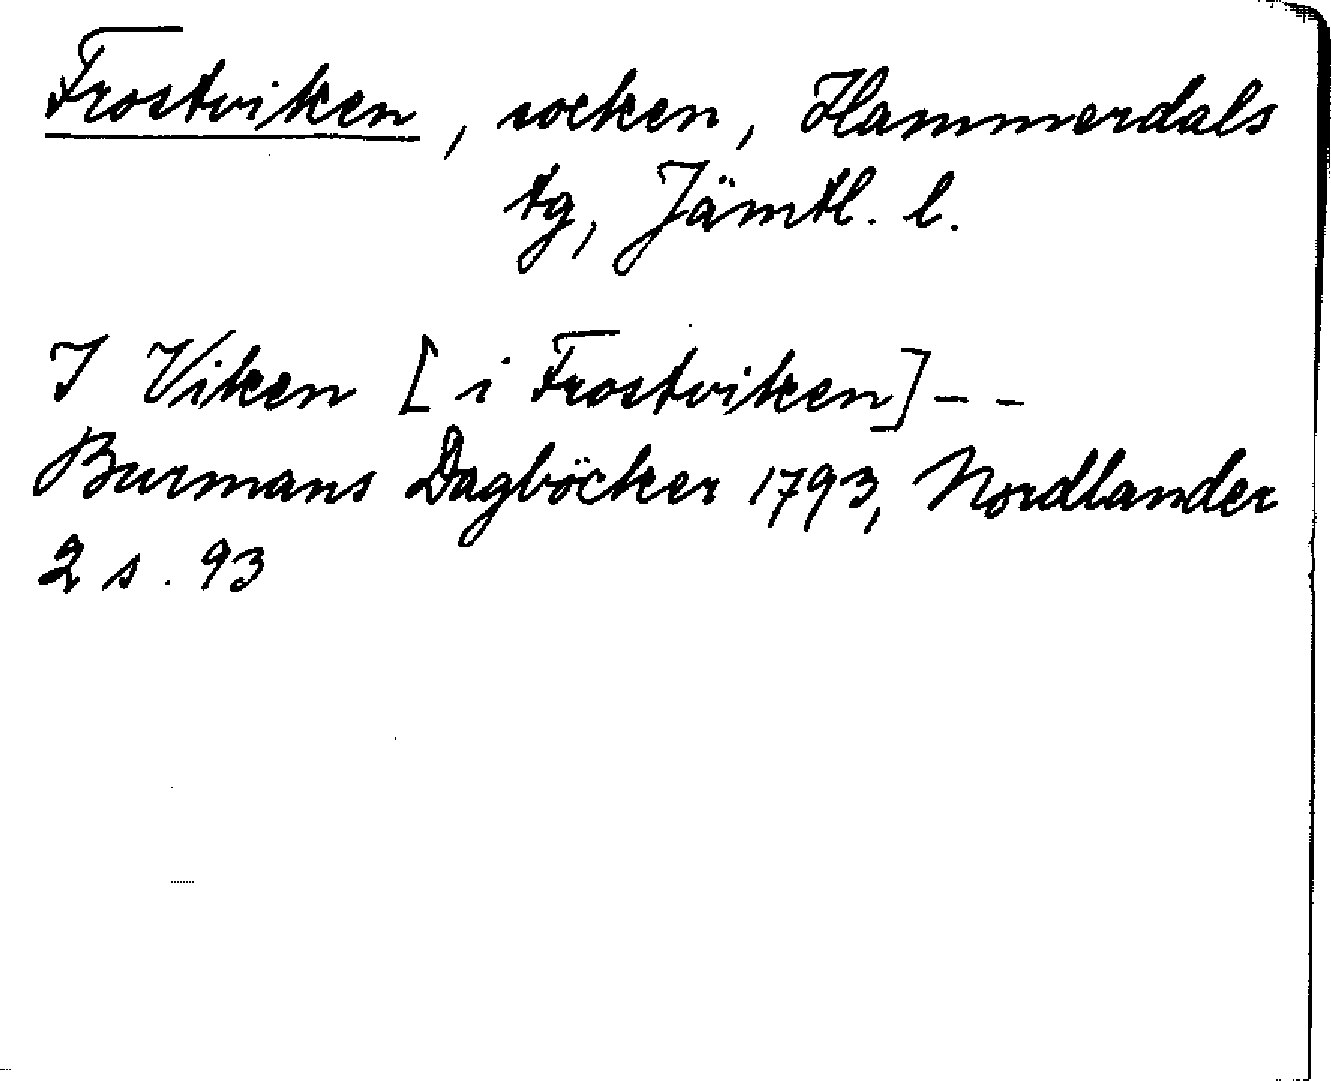 Frostviken, socken, Hammerdals
tg, Jämtl. l.
I Viken [i Frostviken] - -
Burmans Dagböcker 1793, Nordlander
2 s. 93